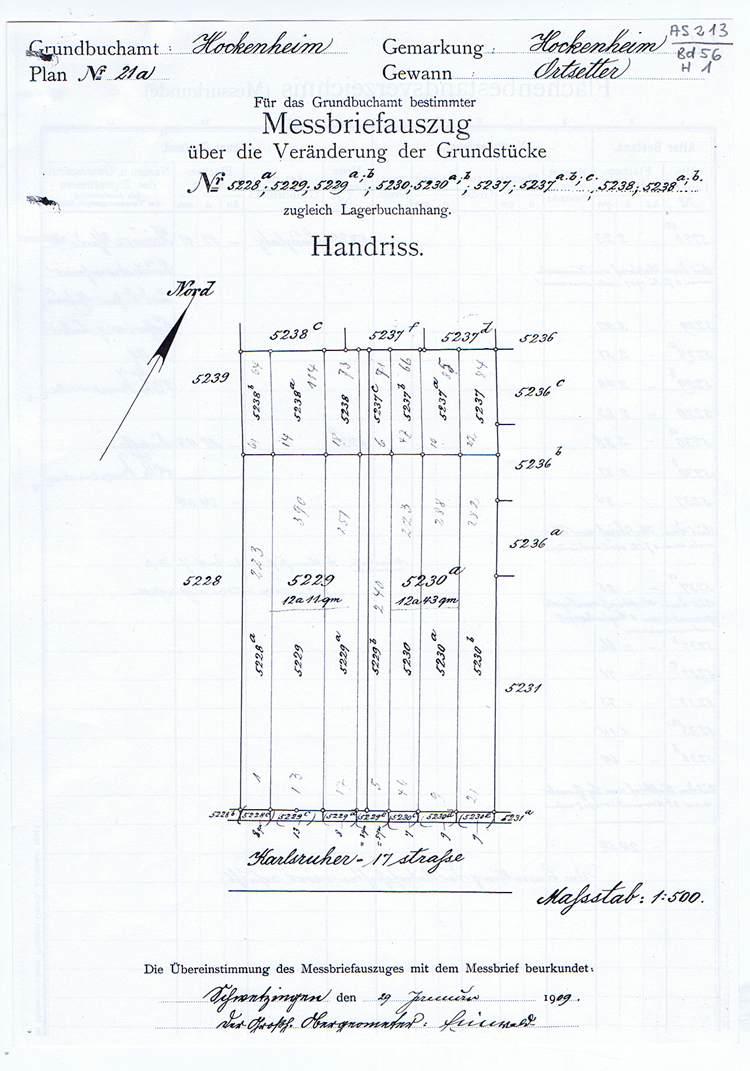 Grundbuchamt: Hockenheim Gemarkung: Hockenheim AS 213
Plan № 21a Gewann: Ortsetter Bd 56
H 1
Für das Grundbuchamt bestimmter
Messbriefauszug
über die Veränderung der Grundstücke
Nr 5228a; 5229; 5229a,b; 5230; 5230a,b; 5237; 5237a.b.c.; 5238; 5238a.b.
zugleich Lagerbuchanhang.
Handriss.
Nord
5238c 5237f 5237d 5236
5239
64 114 73 71 66 85 84
5238b 5238a 5238 5237c 5237b 5237a 5237
5236c
14 18 6 10 22
5236b
390 257 223 288 282
5236a
223
5228 5229 5230a
12a11qm 240 12a43qm
5228a 5229 5229a 5229b 5230 5230a 5230b
5231
1 13 17 5 9 21
5228b (5228c) (5229c) (5229d) (5229e) (5230c) (5230d) (5230e) 5231a
13 7 9 9
Karlsruher-17 strasse
Maßstab: 1:500.
Die Übereinstimmung des Messbriefauszuges mit dem Messbrief beurkundet:
Schwetzingen den 29 Januar 1909.
Der Großh. Obergeometer: